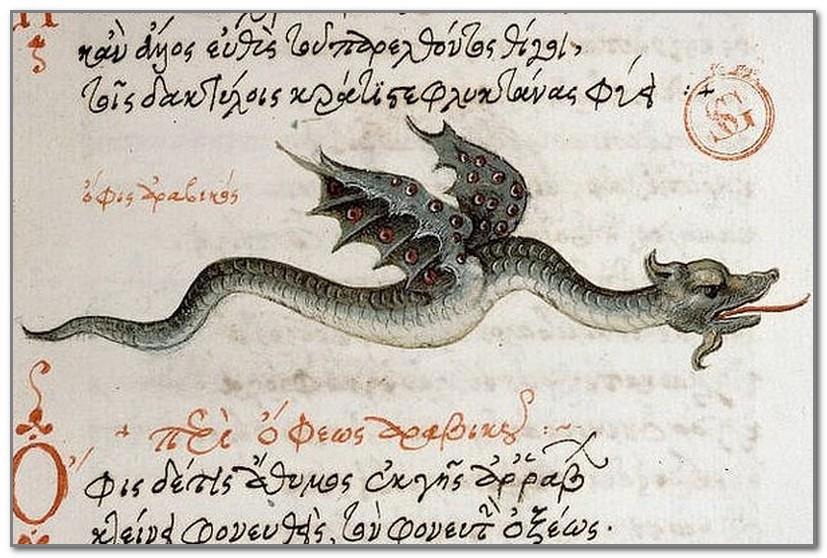 κἂν ἄλλος εὐθὺς τοῦ παρελθόντος θίγῃ,
τοῖς δακτύλοις κράτιστε φλυκταίνας φύει
ὄφις ἀραβικός
+ περὶ ὄφεως ἀραβικοῦ :~
Ὄφις δέ τις ἄθυμος ἐκ γῆς ἀρράβων
κτείνει φονευθεὶς, τὸν φονευτὴν ὀξέως.